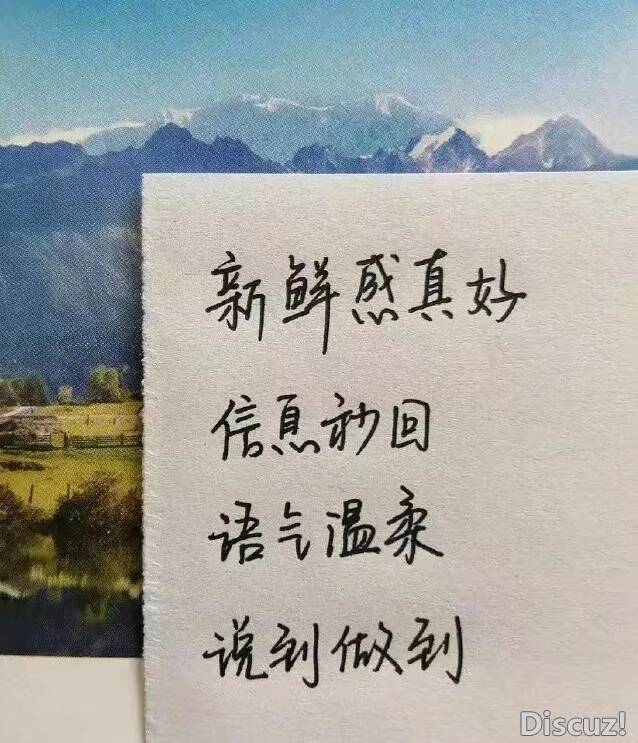 新鲜感真好
信息秒回
语气温柔
说到做到
Discuz!